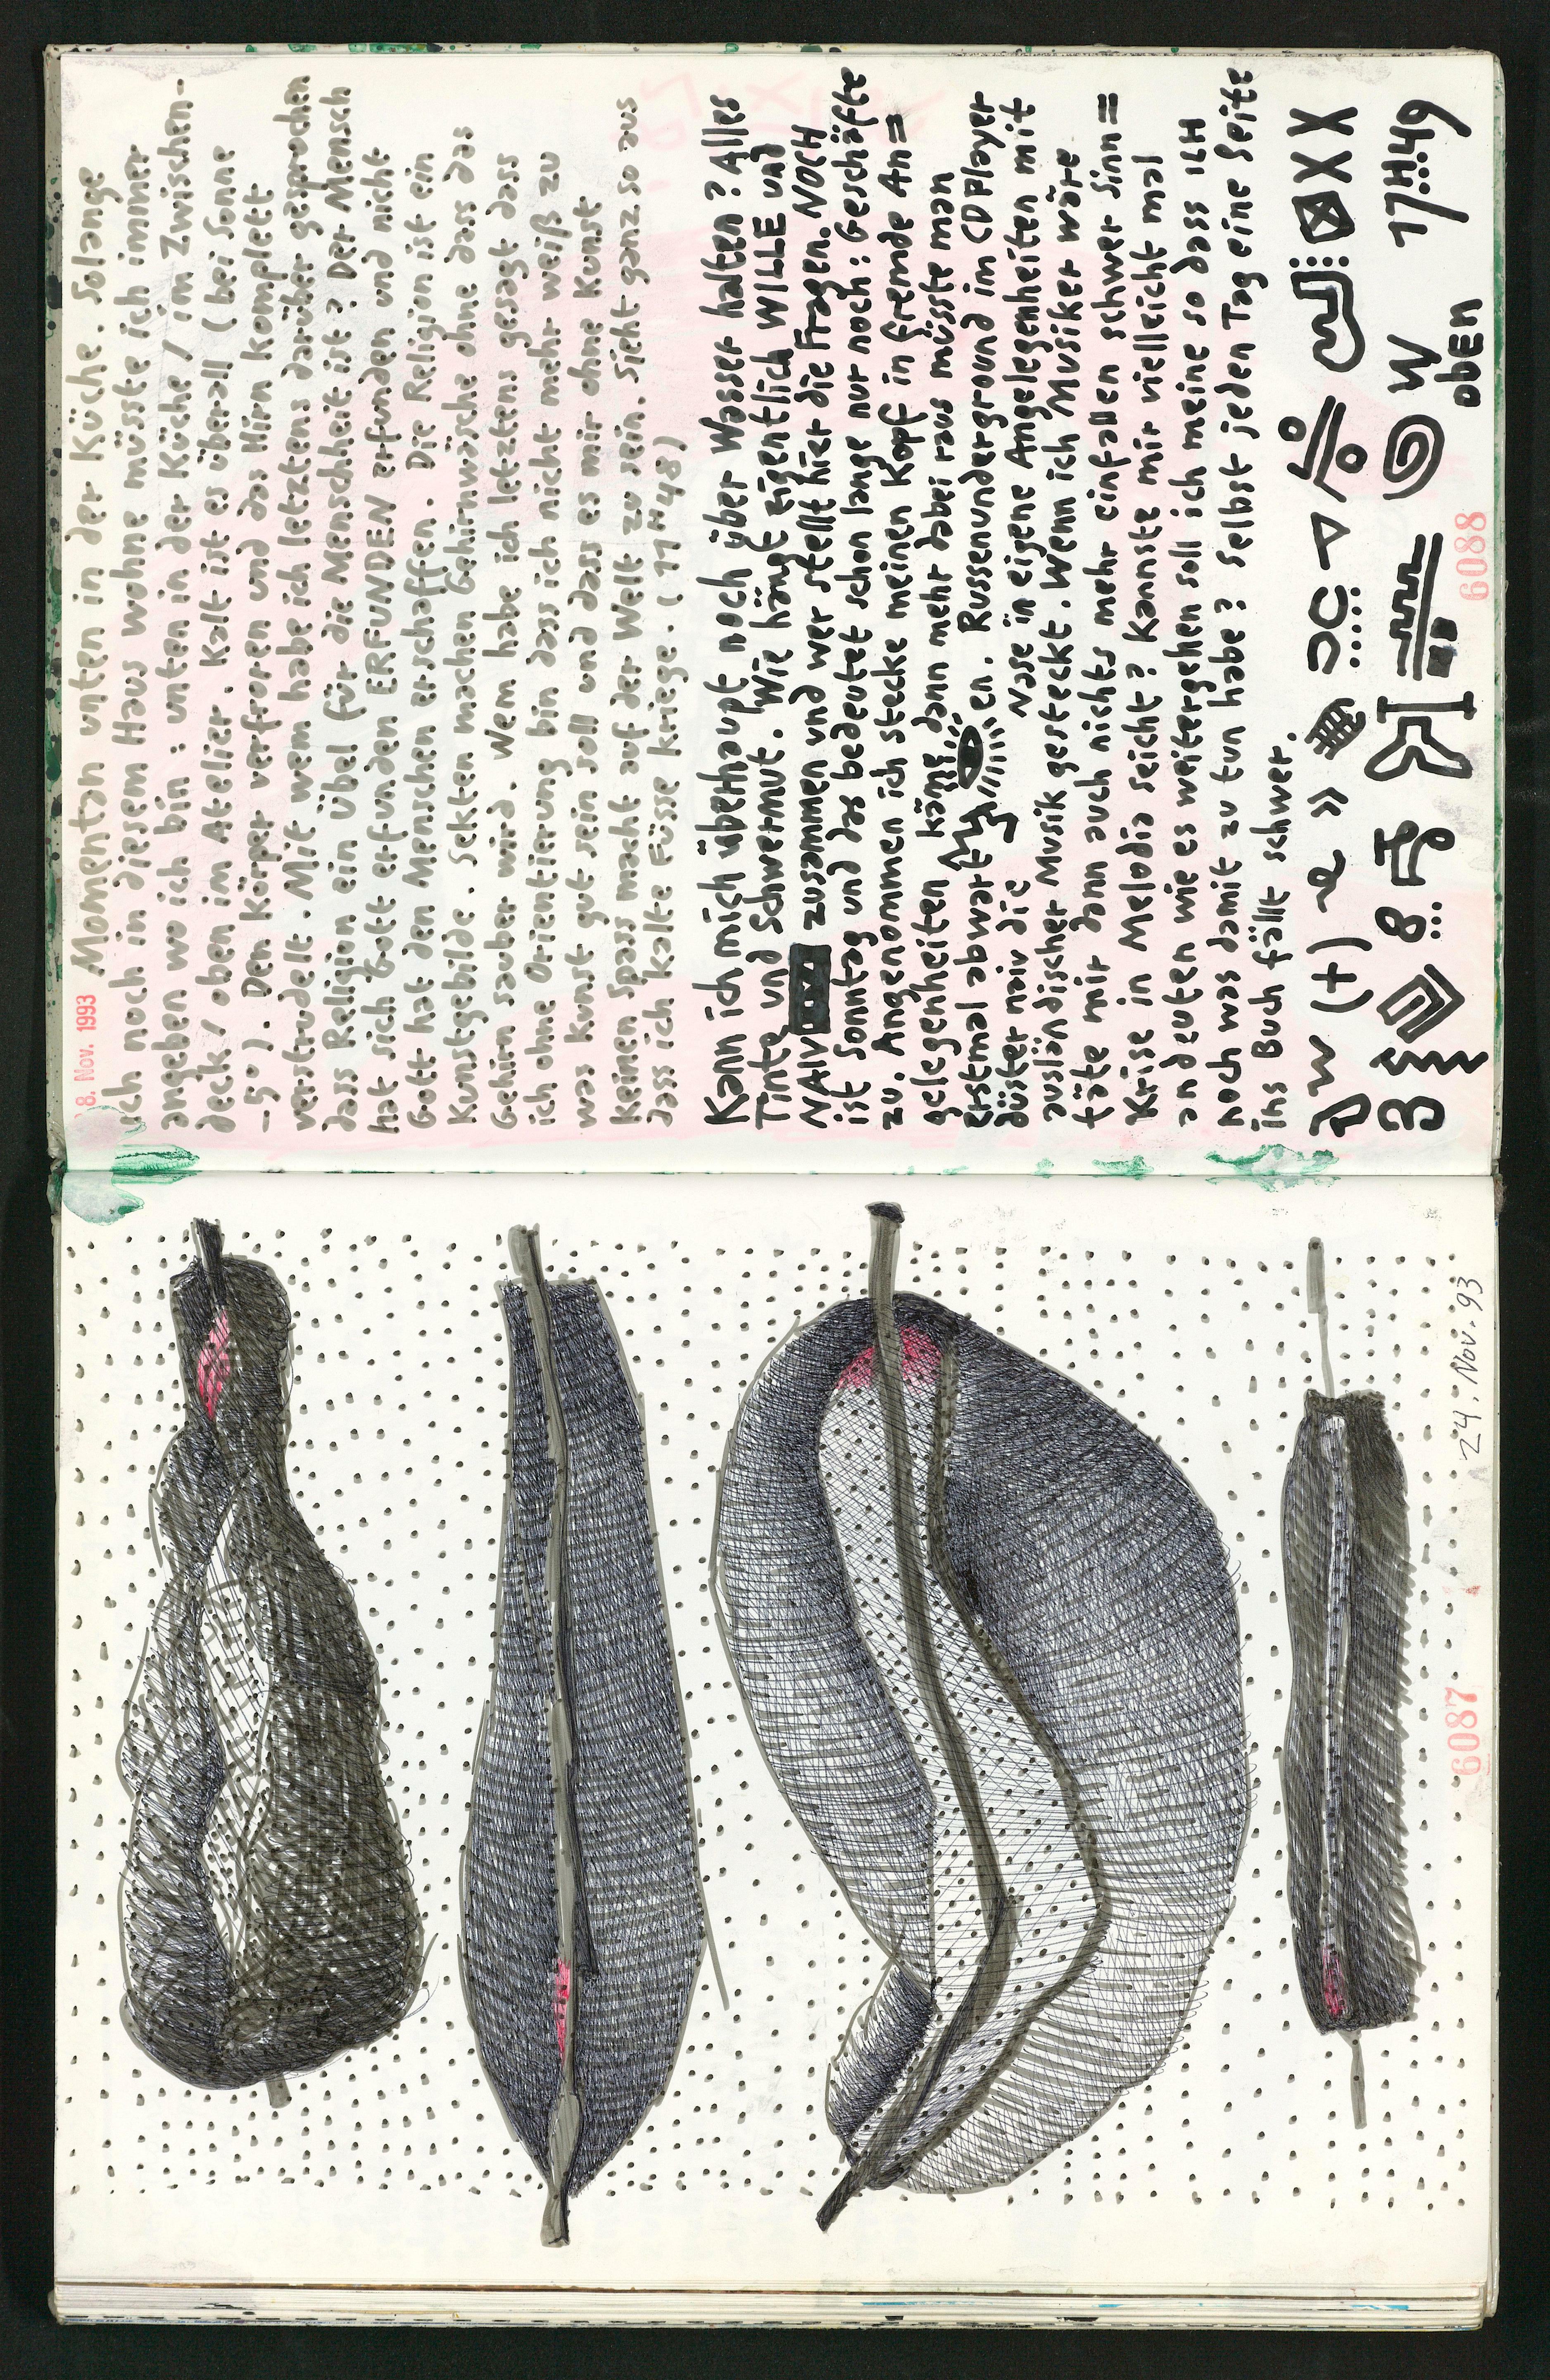 28. Nov. 1993
Momentan unten in der Küche. Solange
ich noch in diesem Haus wohne müsste ich immer
angeben wo ich bin : unten in der Küche / im Zwischen-
deck / oben im Atelier. Kalt ist es überall ( bei Sonne
-5° ). Den Körper verfroren und das Hirn komplett
verstrudelt. Mit wem habe ich letztens darüber gesprochen
dass Religion ein Übel für die Menschheit ist? Der Mensch
hat sich Gott erfunden ERFUNDEN erfunden und nicht
Gott hat den Menschen erschaffen. Die Religion ist ein
Kunstgebilde. Sekten machen Gehirnwäsche ohne dass das
Gehirn sauber wird. Wem habe ich letztens gesagt dass
ich ohne Orientierung bin dass ich nicht mehr weiß zu
was Kunst gut sein soll und dass es mir ohne Kunst
keinen Spass macht auf der Welt zu sein. Sieht ganz so aus
dass ich kalte Füsse kriege. (11H48)
Kann ich mich überhaupt noch über Wasser halten? Alles
Tinte und Schwermut. Wie hängt eigentlich WILLE und
NAIV zusammen und wer stellt hier die Fragen. NOCH
ist Sonntag und das bedeutet schon lange nur noch : Geschäfte
zu. Angenommen ich stecke meinen Kopf in fremde An=
gelegenheiten käme dann mehr dabei raus müsste man
erstmal abwarten. Russenunderground im CD Player
düster naiv die Nase in eigene Angelegenheiten mit
ausländischer Musik gesteckt. Wenn ich Musiker wäre
täte mir dann auch nichts mehr einfallen schwer Sinn=
Krise in Melodia seicht? Kannste mir vielleicht mal
andeuten wie es weitergehen soll ich meine so dass ICH
noch was damit zu tun habe? Selbst jeden Tag eine Seite
ins Buch fällt schwer.
17H49
oben
6088
24. Nov. 93
6087